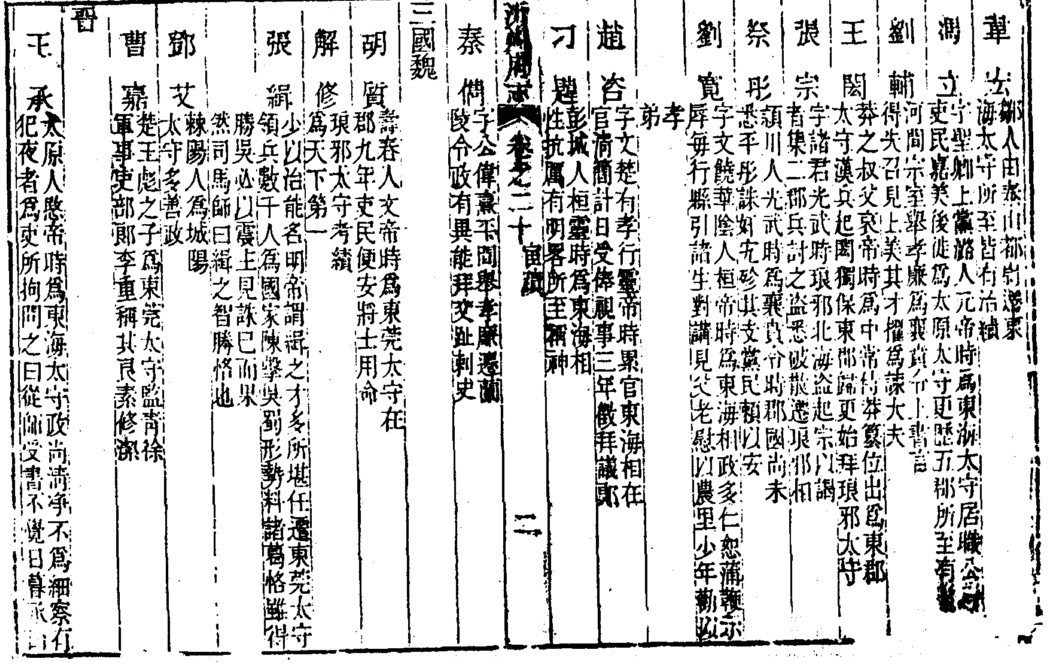 鄒人由泰山都尉遷東
海太守所至皆有治績
馮立
字聖卿上黨潞人元帝時爲東海太守居職公
吏民嘉美後徙爲太原太守更歷五郡所至有
劉輔
河間宗室舉孝廉爲襄賁令上書言
得失召見上美其才擢爲諫大夫
王閎
莽之叔父哀帝時爲中常侍莽篡位出爲東郡
太守漢兵起閎獨保東郡歸更始拜琅邪太守
張宗
字諸君光武時琅邪北海盜起宗以謁
者集二郡兵討之盜悉破散遷琅邪相
祭彤
潁川人光武時爲襄賁令時郡國尚未
悉平彤誅奸宄殄其支黨民賴以安
劉寬
字文饒華陰人桓帝時爲東海相政多仁恕蒲鞭示
辱每行縣引諸生對講見父老慰以農里少年勸以
孝
弟
趙咨
字文楚有孝行靈帝時累官東海相在
官清簡計日受俸視事三年徵拜議郎
刁韙
彭城人桓靈時爲東海相
性抗厲有明畧所至稱神
沂州府志 卷之二十 宦蹟 二
秦儁
字公偉熹平間舉孝廉遷蘭
陵令政有異能拜交趾刺史
三國魏
胡質
壽春人文帝時爲東莞太守在
郡九年吏民便安將士用命
解修
琅邪太守考績
爲天下第一
張緝
少以治能名明帝謂緝之才多所堪任遷東莞太守
領兵數千人爲國家陳擊吳蜀形勢料諸葛恪雖得
勝吳必以震主見誅已而果
然司馬師曰緝之智勝恪也
鄧艾
棘陽人爲城陽
太守多善政
曹嘉
楚王彪之子爲東莞太守監靑徐
軍事吏部郞李重稱其艮素修潔
晉
王承
太原人愍帝時爲東海太守政尚淸淨不爲細察有
犯夜者爲吏所拘問之曰從師受書不覺日暮承曰